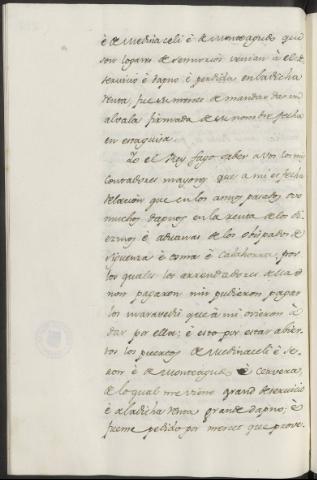 è de Medinaceli è de Monteagudo que
son logares de señorios venian à el d
servicio è dapno è perdida en la dicha
renta, fue su merced de mandar dar su
alvala firmada de su nombre fecha
en esta guisa.
Yo el Rey fago saber a vos los mis
contadores mayores que a mi es fecha
relacion que en los annos pasados ovo
muchos dapnos en la renta de los di
ezmos è aduanas de los obispados de
Siguenza è Osma è Calahorra, por
los quales los arrendadores della
non pagaron nin pudieron pagar
los maravedis que à mi ovieron à
dar por ella; è esto por estar abier
tos los puertos de Medinaceli è Se
ron è de Monteagudo è Cervera,
de lo qual me vieno grand deservicio
è a la dicha renta grande dapno; è
fueme pedido por merced que prove